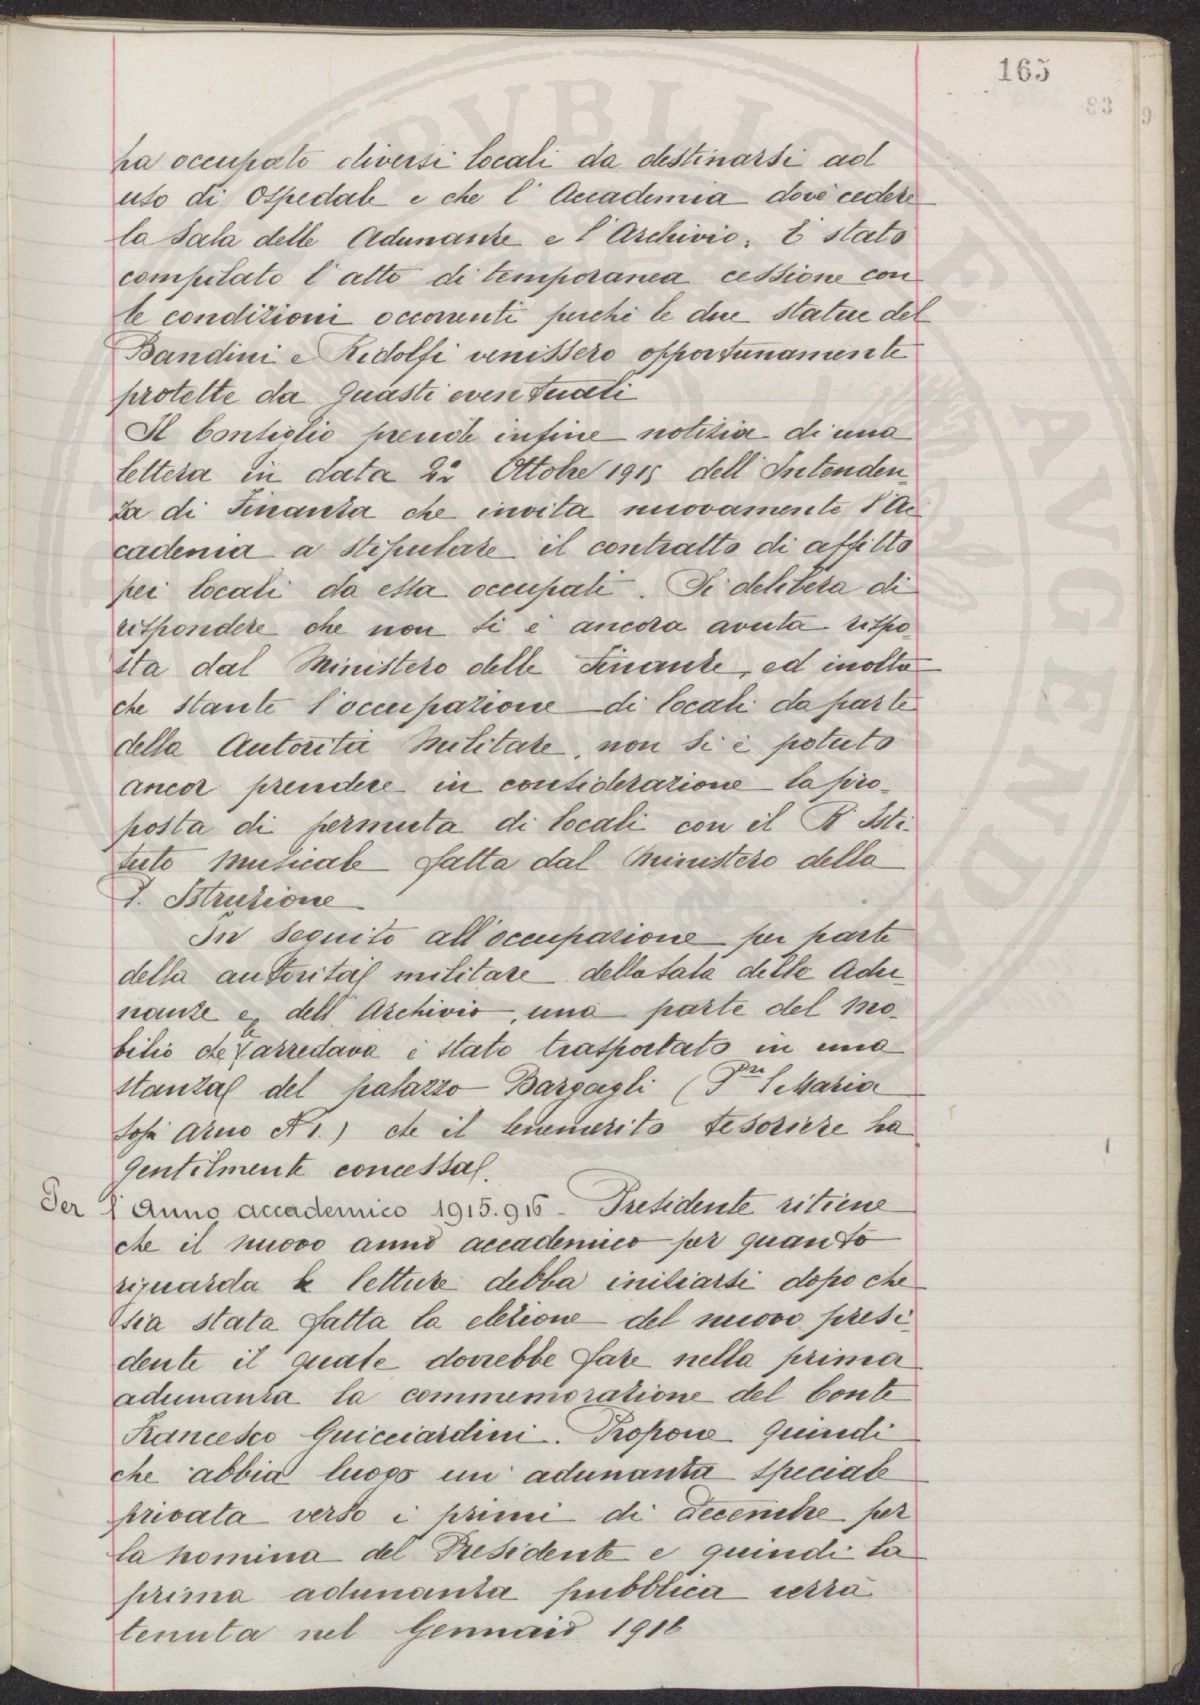 165
83
ha occupato diversi locali da destinarsi ad
uso di Ospedale e che l'Accademia dovè cedere
la Sala delle Adunanze e l'Archivio. È stato
compilato l'atto di temporanea cessione con
le condizioni occorrenti perchè le due statue del
Bandini e Ridolfi venissero opportunamente
protette da guasti eventuali
Il Consiglio prende infine notizia di una
lettera in data 22 Ottobre 1915 dell'Intenden-
za di Finanza che invita nuovamente l'Ac
cademia a stipulare il contratto di affitto
pei locali da essa occupati. Si delibera di
rispondere che non si è ancora avuta rispo-
sta dal Ministero delle Finanze, ed inoltre
che stante l'occupazione di locali da parte
della Autorità Militare, non si è potuto
ancor prendere in considerazione la pro-
posta di permuta di locali con il R. Isti-
tuto Musicale fatta dal Ministero della
P. Istruzione
In seguito all'occupazione per parte
della autorità militare della sala delle Adu-
nanze e dell'Archivio, una parte del mo-
bilio che le arredava è stato trasportato in una
stanza del palazzo Bargagli (Pza S Maria
Sopr Arno N 1.) che il benemerito tesoriere ha
gentilmente concessa.
Per l'Anno accademico 1915.916 - Presidente ritiene
che il nuovo anno accademico per quanto
riguarda le letture debba iniziarsi dopo che
sia stata fatta la elezione del nuovo presi-
dente il quale dovrebbe fare nella prima
adunanza la commemorazione del Conte
Francesco Guicciardini. Propone quindi
che abbia luogo un'adunanza speciale
privata verso i primi di Decembre per
la nomina del Presidente e quindi la
prima adunanza pubblica verrà
tenuta nel Gennaio 1916
PUBLICAE AUGENDAE